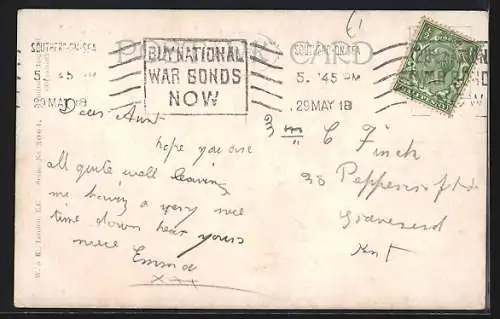 POST CARD
SOUTHEND-ON-SEA
5. 45 PM
29 MAY 18
BUY NATIONAL
WAR BONDS
NOW
SOUTHEND-ON-SEA
5. 45 PM
29 MAY 18
Dear Aunt
hope you are
all quite well leaving
me having a very nice
time down hear yours
niece Emma
xxx
C Finch
38
Gravesend
Kent
W. & K., London, E.C.